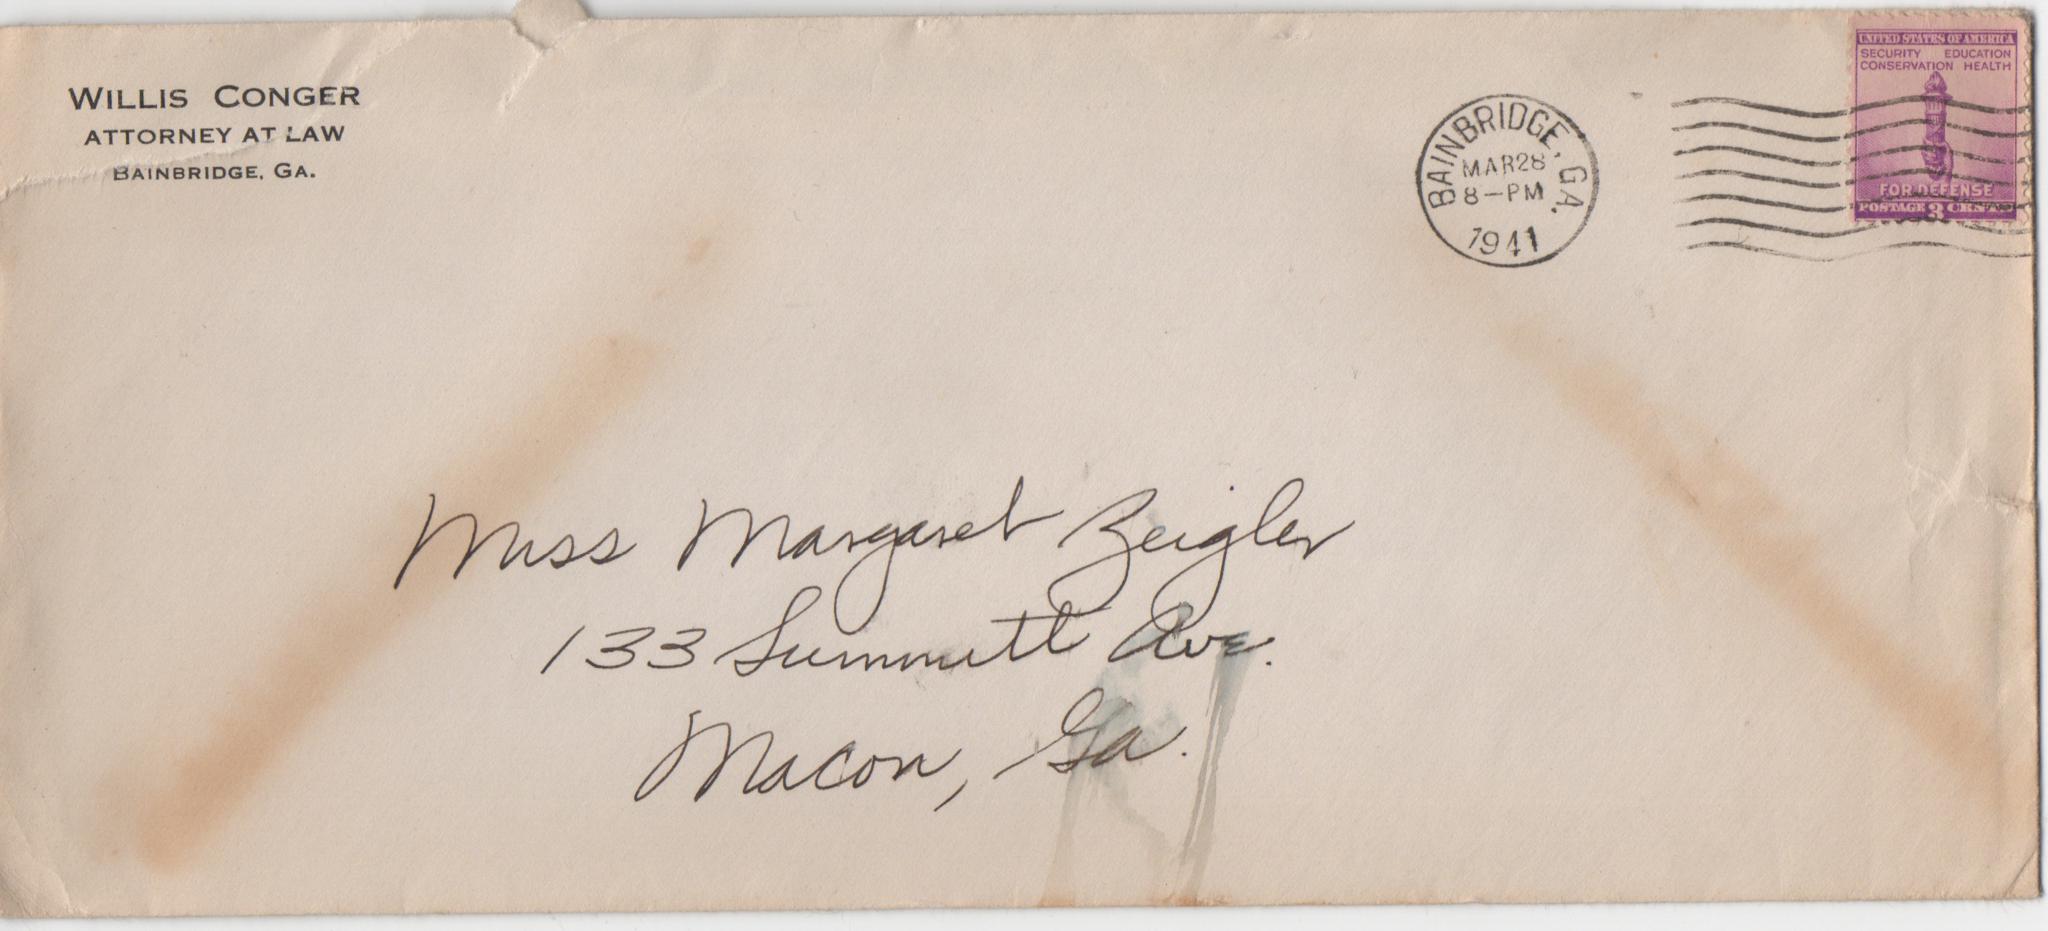 WILLIS CONGER
ATTORNEY AT LAW
BAINBRIDGE, GA.
BAINBRIDGE, GA.
MAR 28
8-PM
1941
UNITED STATES OF AMERICA
SECURITY EDUCATION
CONSERVATION HEALTH
FOR DEFENSE
POSTAGE 3 CENTS
Miss Margaret Zeigler
133 Summitt Ave.
Macon, Ga.